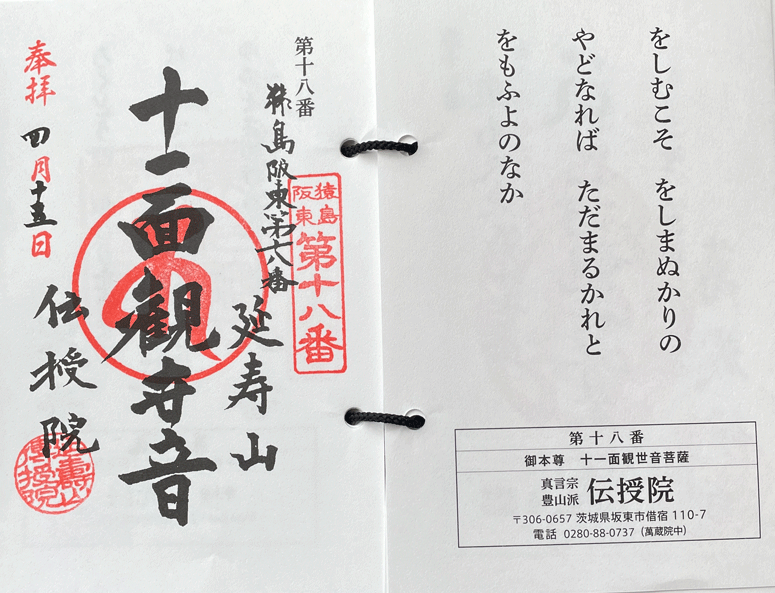 をしむこそ をしまぬかりの
やどなれば ただまるかれと
をもふよのなか
第十八番
御本尊 十一面観世音菩薩
真言宗
豊山派 伝授院
〒306-0657 茨城県坂東市借宿 110-7
電話 0280-88-0737（萬蔵院中）
第十八番
猿島阪東第十八番
猿島
阪東
第十八番
延寿山
十一面觀世音
伝授院
奉拝 四月十五日
延壽山
傳授院